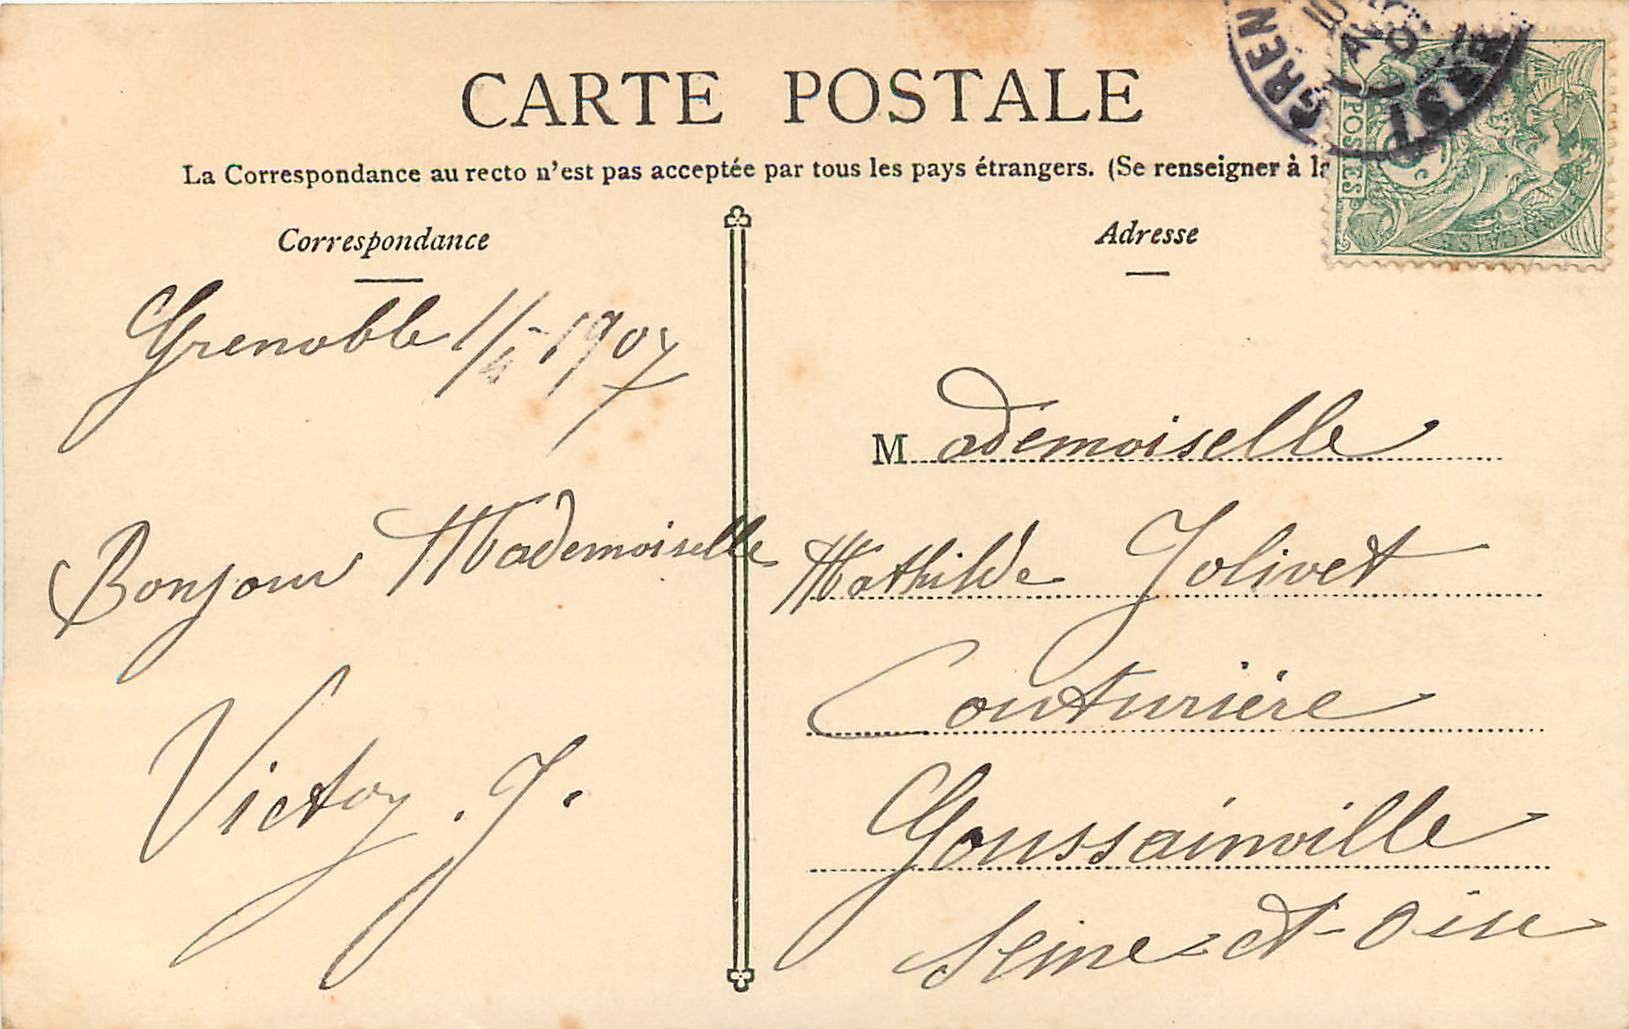 CARTE POSTALE
La Correspondance au recto n'est pas acceptée par tous les pays étrangers. (Se renseigner à la
Correspondance
Grenoble 1/4-1907
Bonjour Mademoiselle
Victor. J.
Adresse
Mademoiselle
Mathilde Jolivet
Couturière
Goussainville
Seine-et-Oise
GREN
POSTES